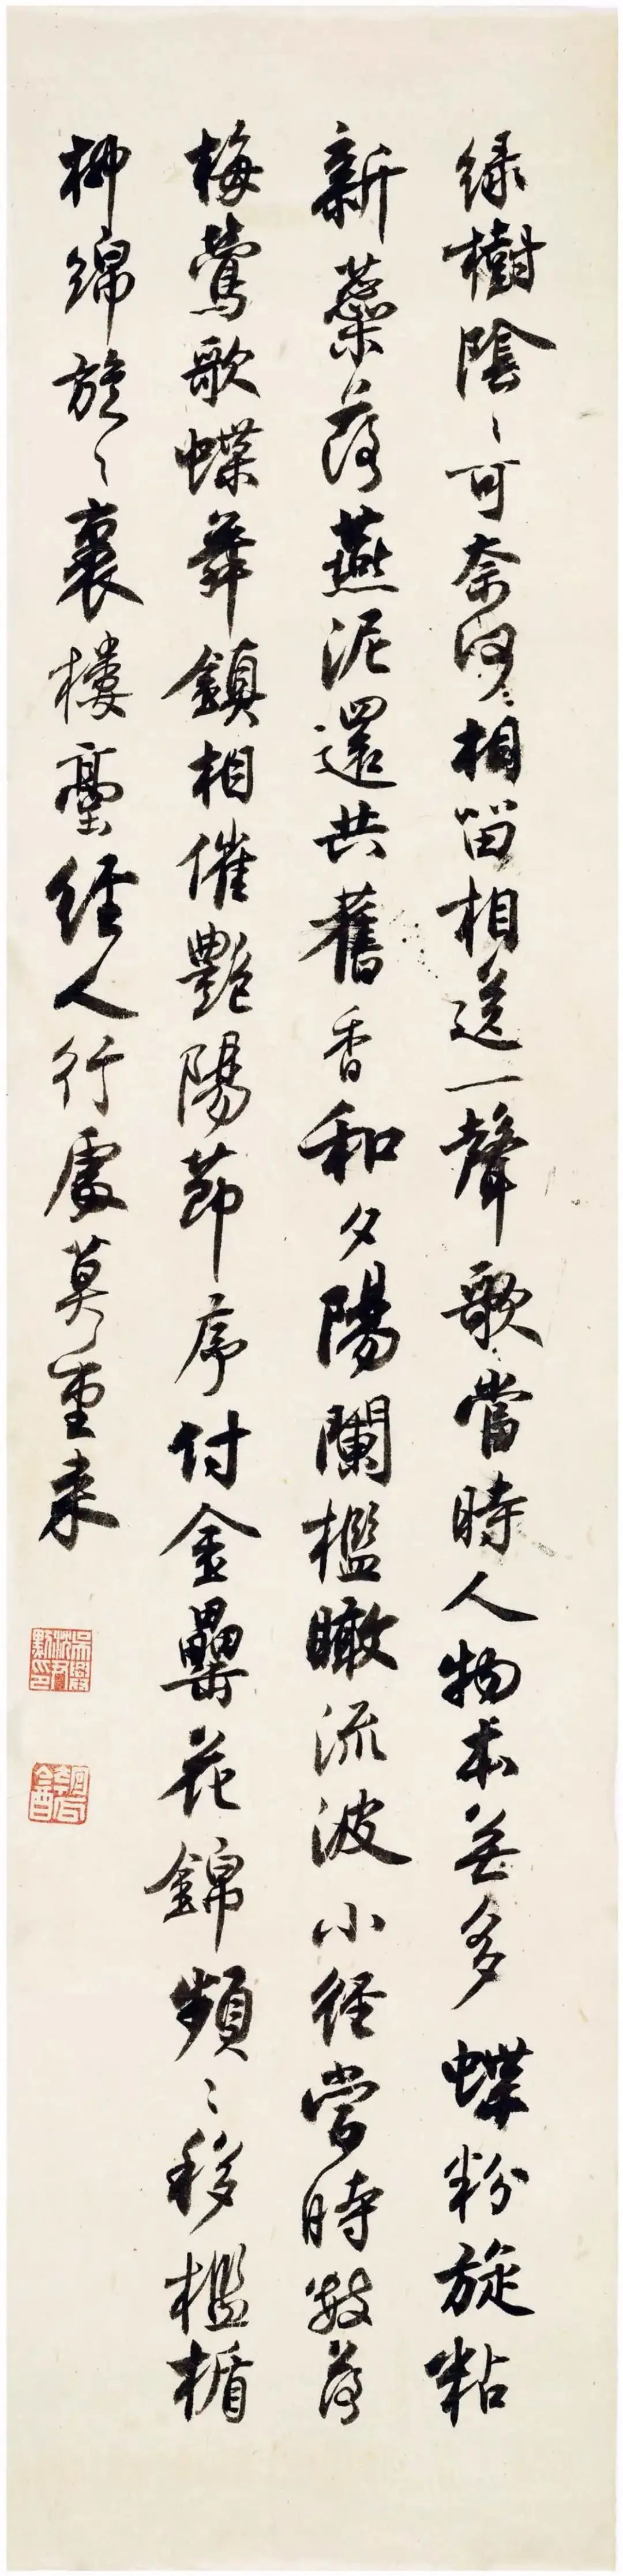 綠樹陰〻可奈何相留相送一聲歌當時人物本無多蝶粉旋粘
新蘂落燕泥還共舊香和夕陽闌檻瞰流波小徑當時數落
梅鶯歌蝶舞鎮相催艷陽節序付金罍花錦頻〻移檻楯
柳綿旋〻裹樓臺經人行處莫重來